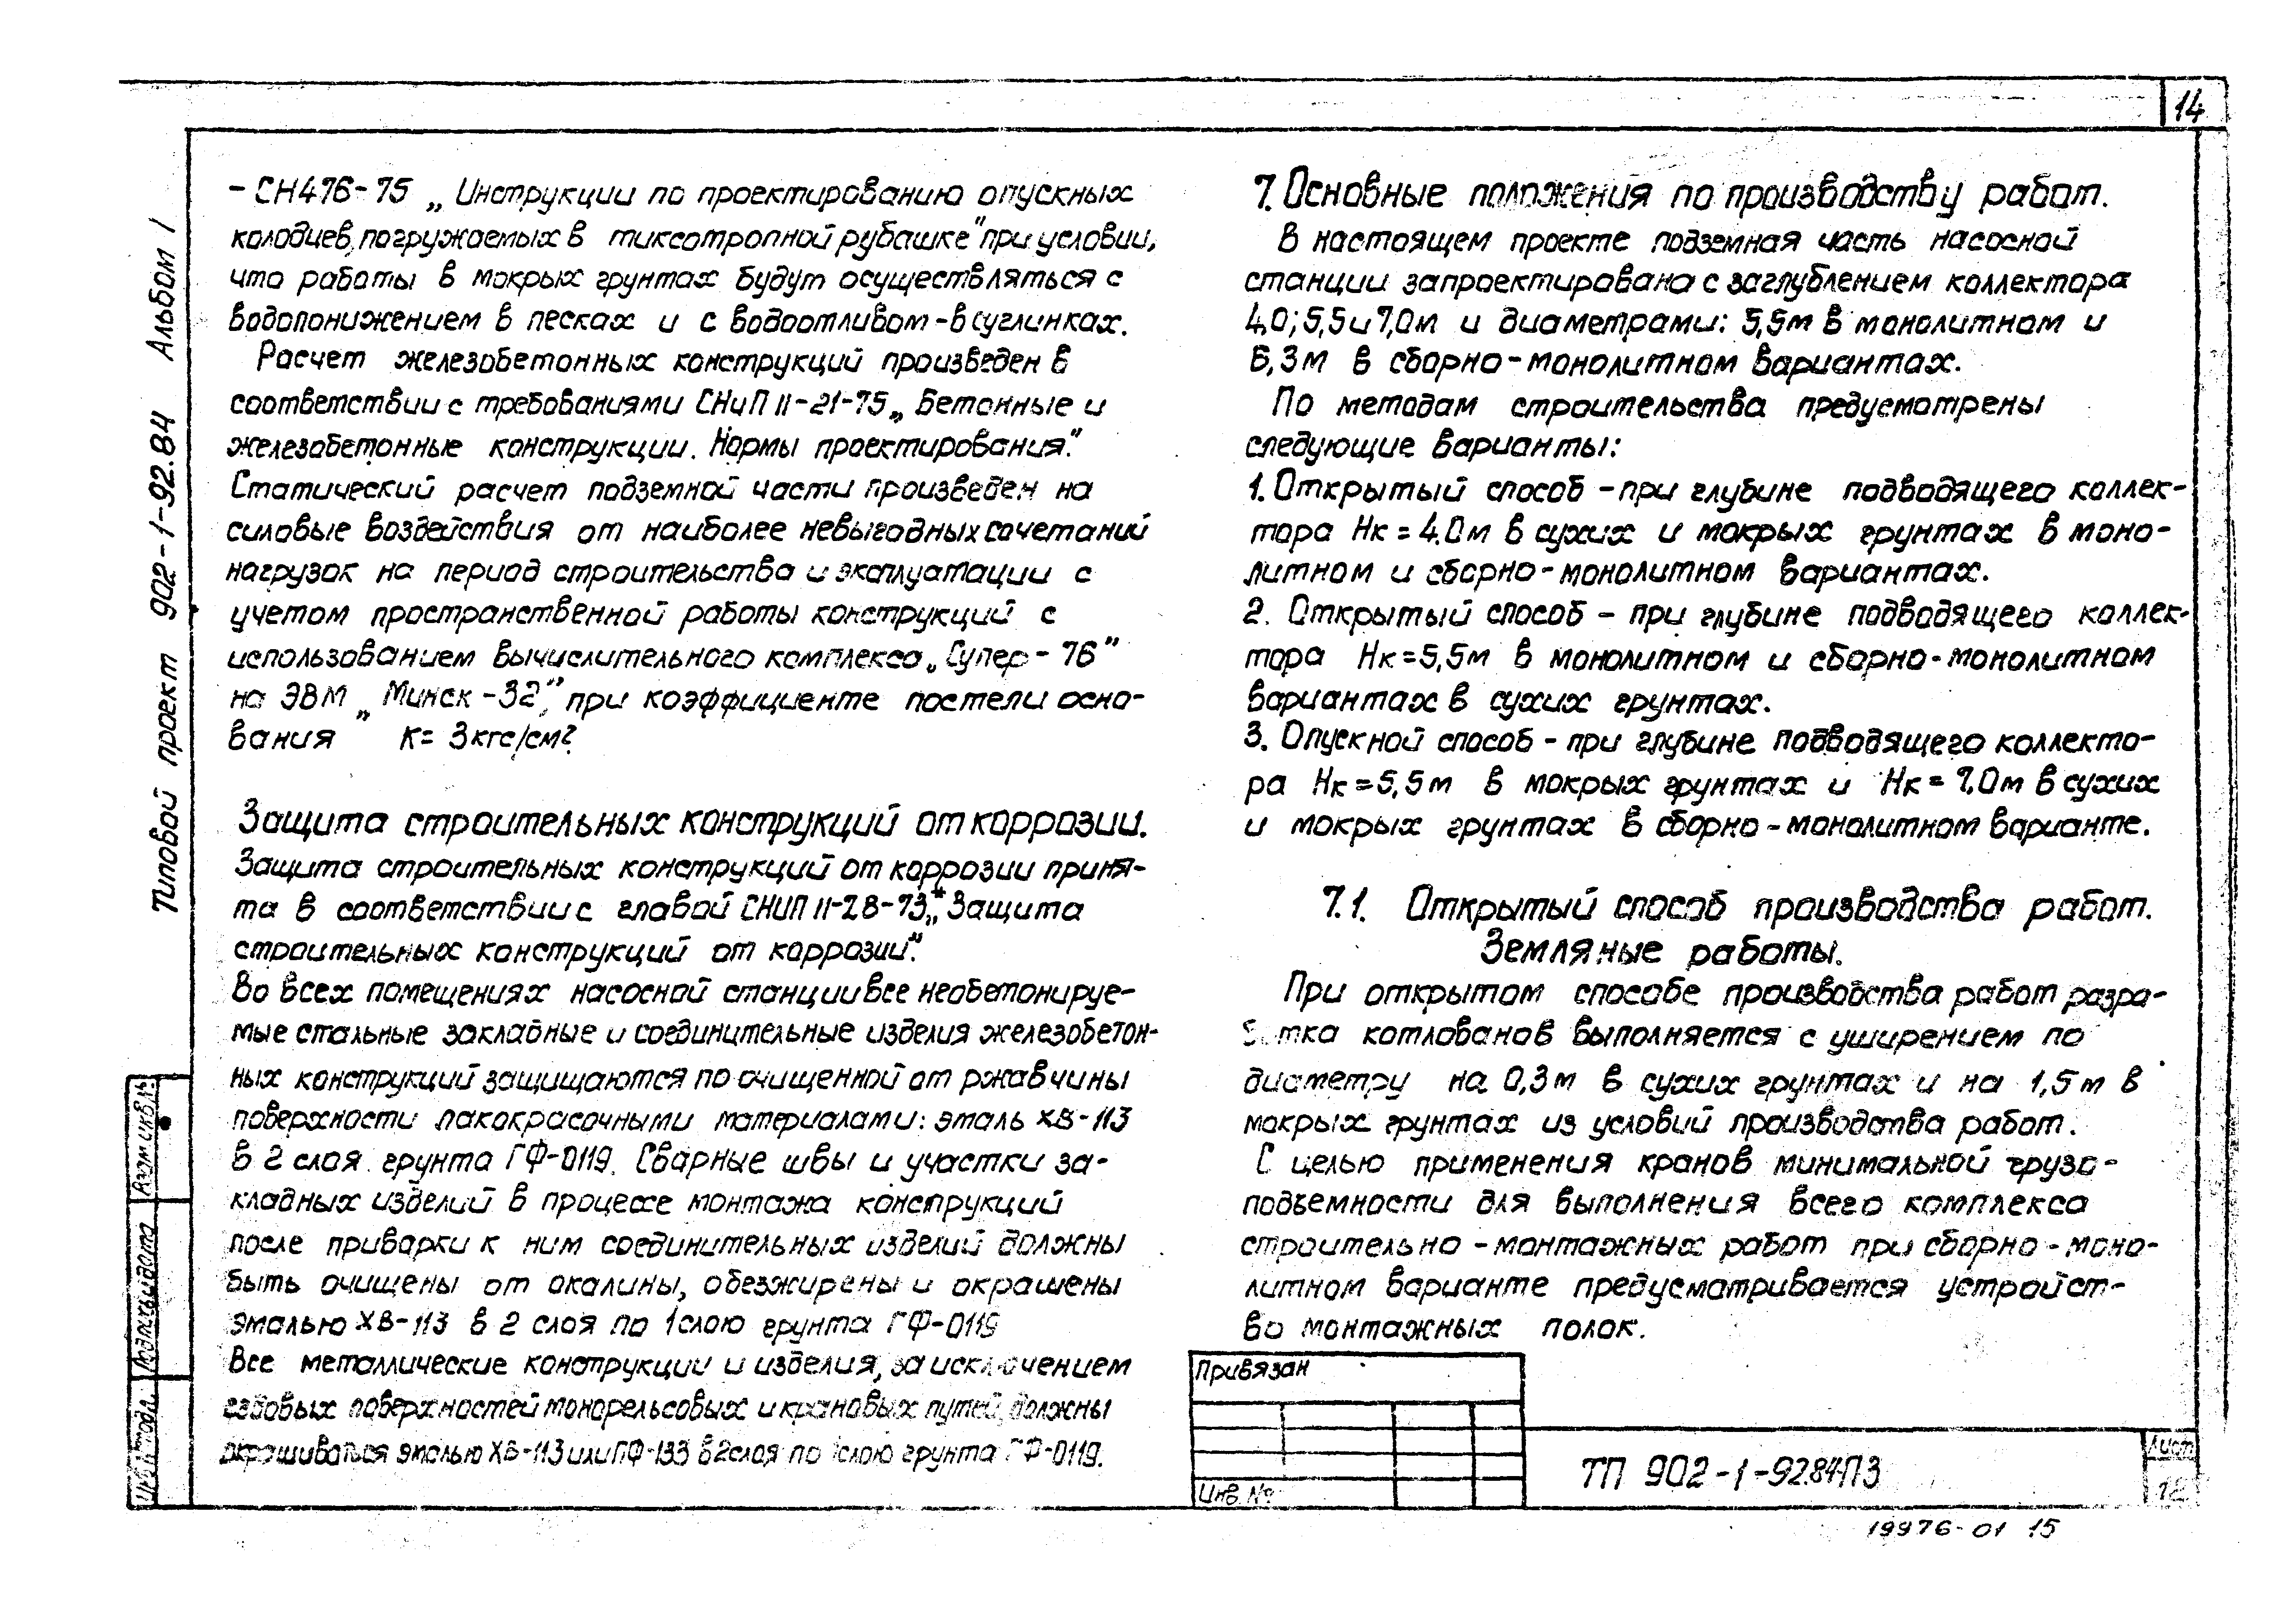 14
Типовой проект 902-1-92.84 Альбом I
- СН476-75 „Инструкции по проектированию опускных
колодцев, погружаемых в тиксотропной рубашке" при условии,
что работы в мокрых грунтах будут осуществляться с
водопонижением в песках и с водоотливом - в суглинках.
Расчет железобетонных конструкций произведен в
соответствии с требованиями СНиП II-21-75 „Бетонные и
железобетонные конструкции. Нормы проектирования".
Статический расчет подземной части произведен на
силовые воздействия от наиболее невыгодных сочетаний
нагрузок на период строительства и эксплуатации с
учетом пространственной работы конструкций с
использованием вычислительного комплекса „Супер-76"
на ЭВМ „Минск-32", при коэффициенте постели осно-
вания К= 3кгс/см².
Защита строительных конструкций от коррозии.
Защита строительных конструкций от коррозии приня-
та в соответствии с главой СНИП II-28-73* „Защита
строительных конструкций от коррозии".
Во всех помещениях насосной станции все необетонируе-
мые стальные закладные и соединительные изделия железобетон-
ных конструкций защищаются по очищенной от ржавчины
поверхности лакокрасочными материалами: эмаль ХВ-113
в 2 слоя грунта ГФ-0119. Сварные швы и участки за-
кладных изделий в процессе монтажа конструкций
после приварки к ним соединительных изделий должны
быть очищены от окалины, обезжирены и окрашены
эмалью ХВ-113 в 2 слоя по 1 слою грунта ГФ-0119
Все металлические конструкции и изделия, за исключением
ездовых поверхностей монорельсовых и крановых путей, должны
окрашиваться эмалью ХВ-113 или ПФ-133 в 2 слоя по 1 слою грунта ГФ-0119.
7. Основные положения по производству работ.
В настоящем проекте подземная часть насосной
станции запроектирована с заглублением коллектора
4,0; 5,5 и 7,0м и диаметрами: 5,5м в монолитном и
6,3м в сборно-монолитном вариантах.
По методам строительства предусмотрены
следующие варианты:
1. Открытый способ - при глубине подводящего коллек-
тора Нк = 4.0м в сухих и мокрых грунтах в моно-
литном и сборно-монолитном вариантах.
2. Открытый способ - при глубине подводящего коллек-
тора Нк=5,5м в монолитном и сборно-монолитном
вариантах в сухих грунтах.
3. Опускной способ - при глубине подводящего коллекто-
ра Нк=5,5м в мокрых грунтах и Нк= 7.0м в сухих
и мокрых грунтах в сборно-монолитном варианте.
7.1. Открытый способ производства работ.
Земляные работы.
При открытом способе производства работ разра-
ботка котлованов выполняется с уширением по
диаметру на 0,3м в сухих грунтах и на 1,5м в
мокрых грунтах из условий производства работ.
С целью применения кранов минимальной грузо-
подъемности для выполнения всего комплекса
строительно-монтажных работ при сборно-моно-
литном варианте предусматривается устройст-
во монтажных полок.
Привязан
Инв. №
ТП 902-1-92.84-ПЗ
Лист
12
Взам инв.№
Подпись и дата
Инв № подл.
19976-01 15